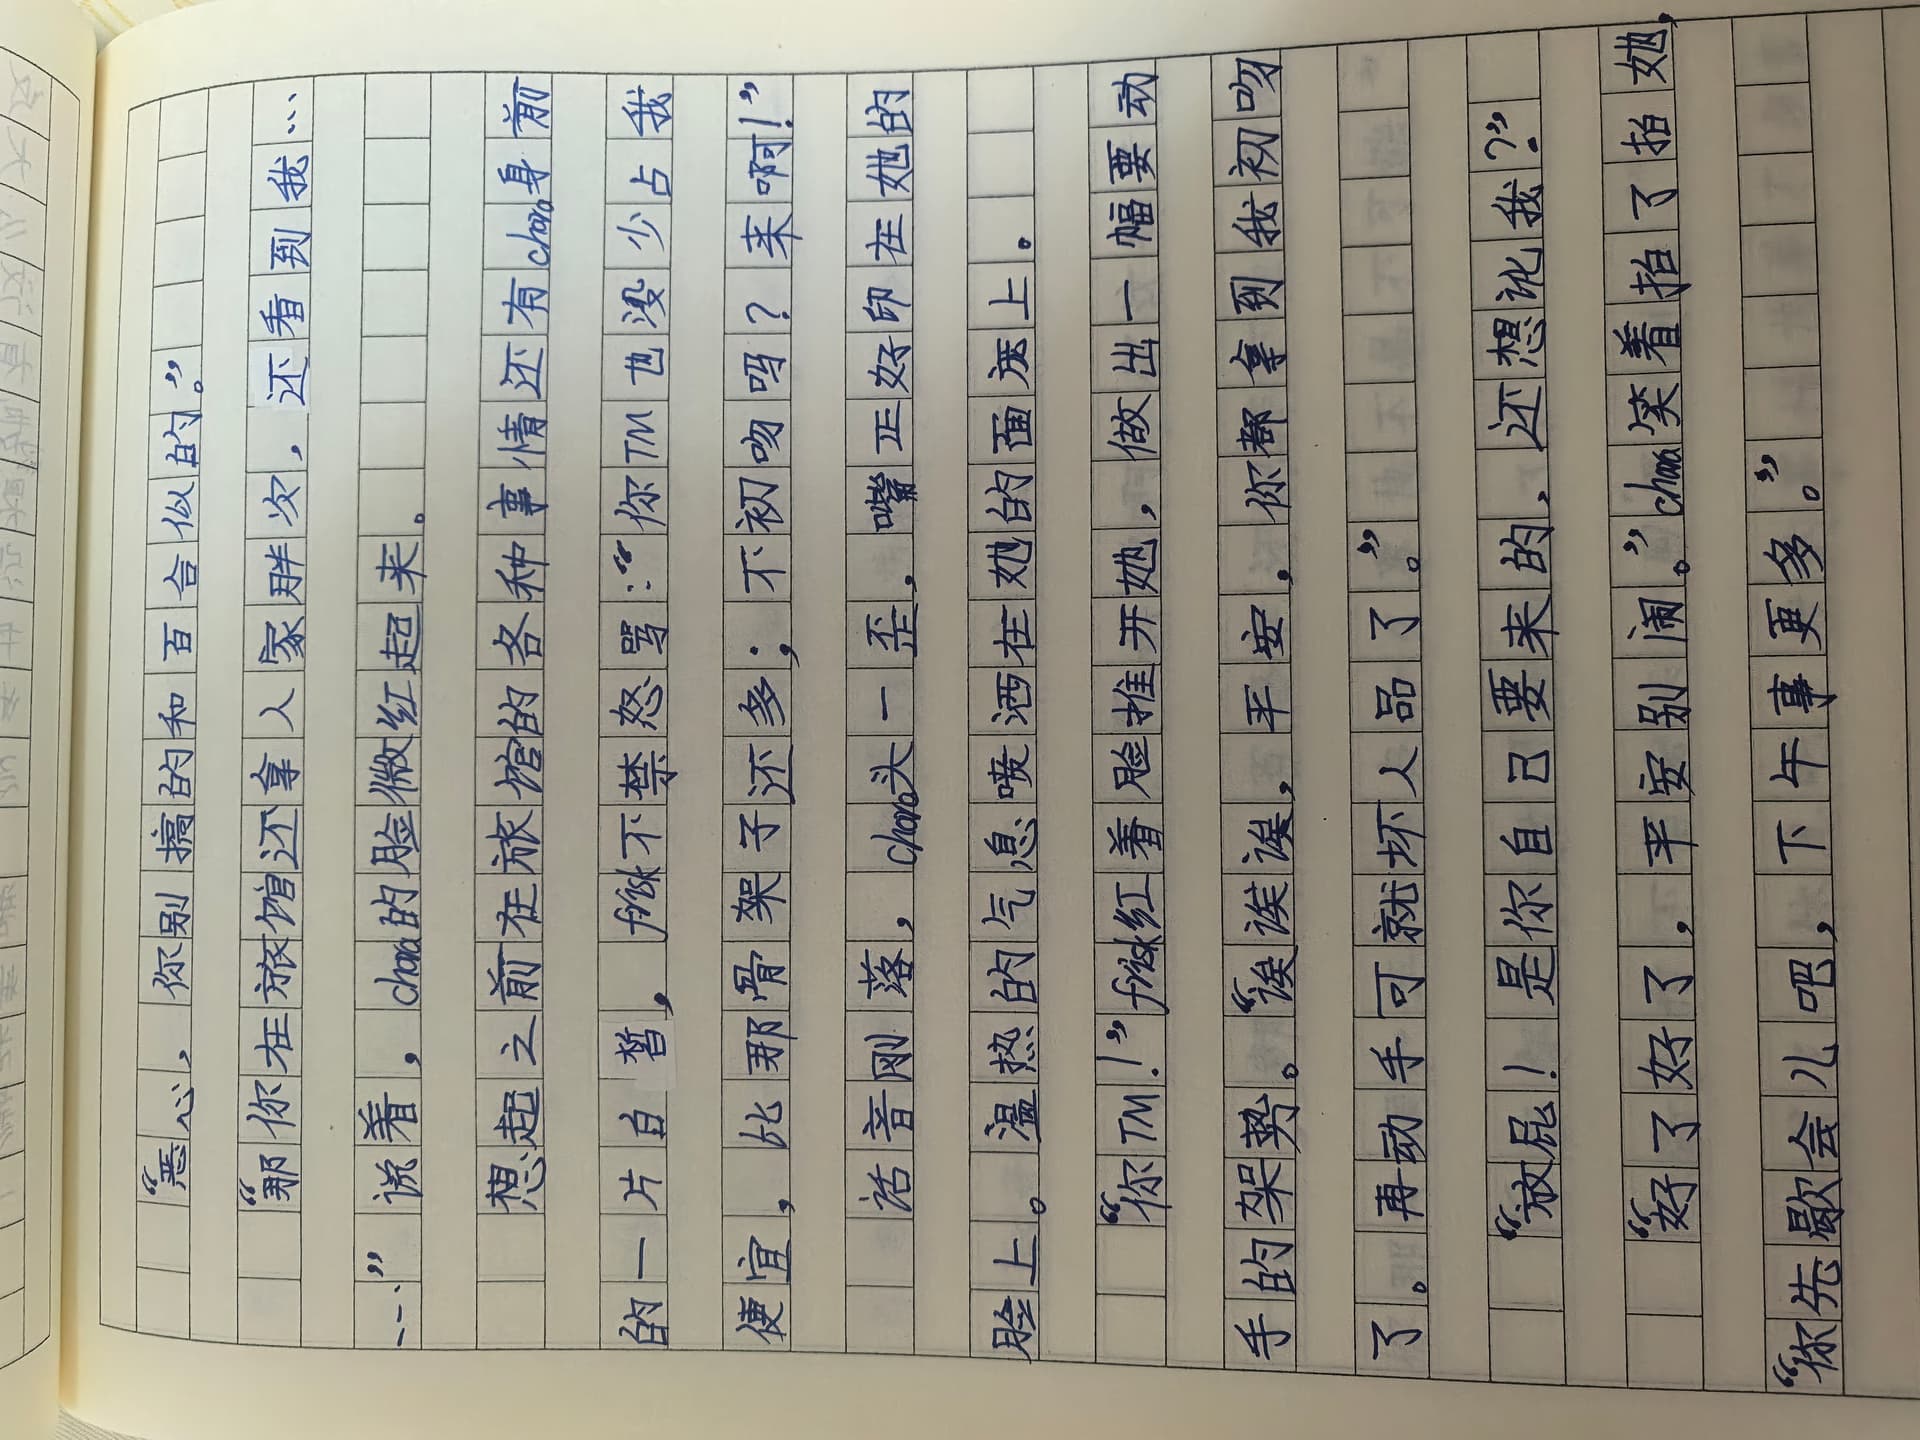 “恶心，你别搞的和百合似的。”
“那你在旅馆还拿人家胖次，还看到我…
…”说着，chara的脸微红起来。
想起之前在旅馆的各种事情还有chara身前
的一片白皙，frisk不禁怒骂：“你TM也没少占我
便宜，比那骨架子还多；不初吻吗？来啊！”
话音刚落，chara头一歪，嘴正好印在她的
脸上。温热的气息喷洒在她的面庞上。
“你TM！”frisk红着脸推开她，做出一幅要动
手的架势。“诶诶诶，平安，你都拿到我初吻
了。再动手可就坏人品了。”
“放屁！是你自己要来的，还想讹我？”
“好了好了，平安别闹。”chara笑着抬了抬她，
“你先歇会儿吧，下午事更多。”